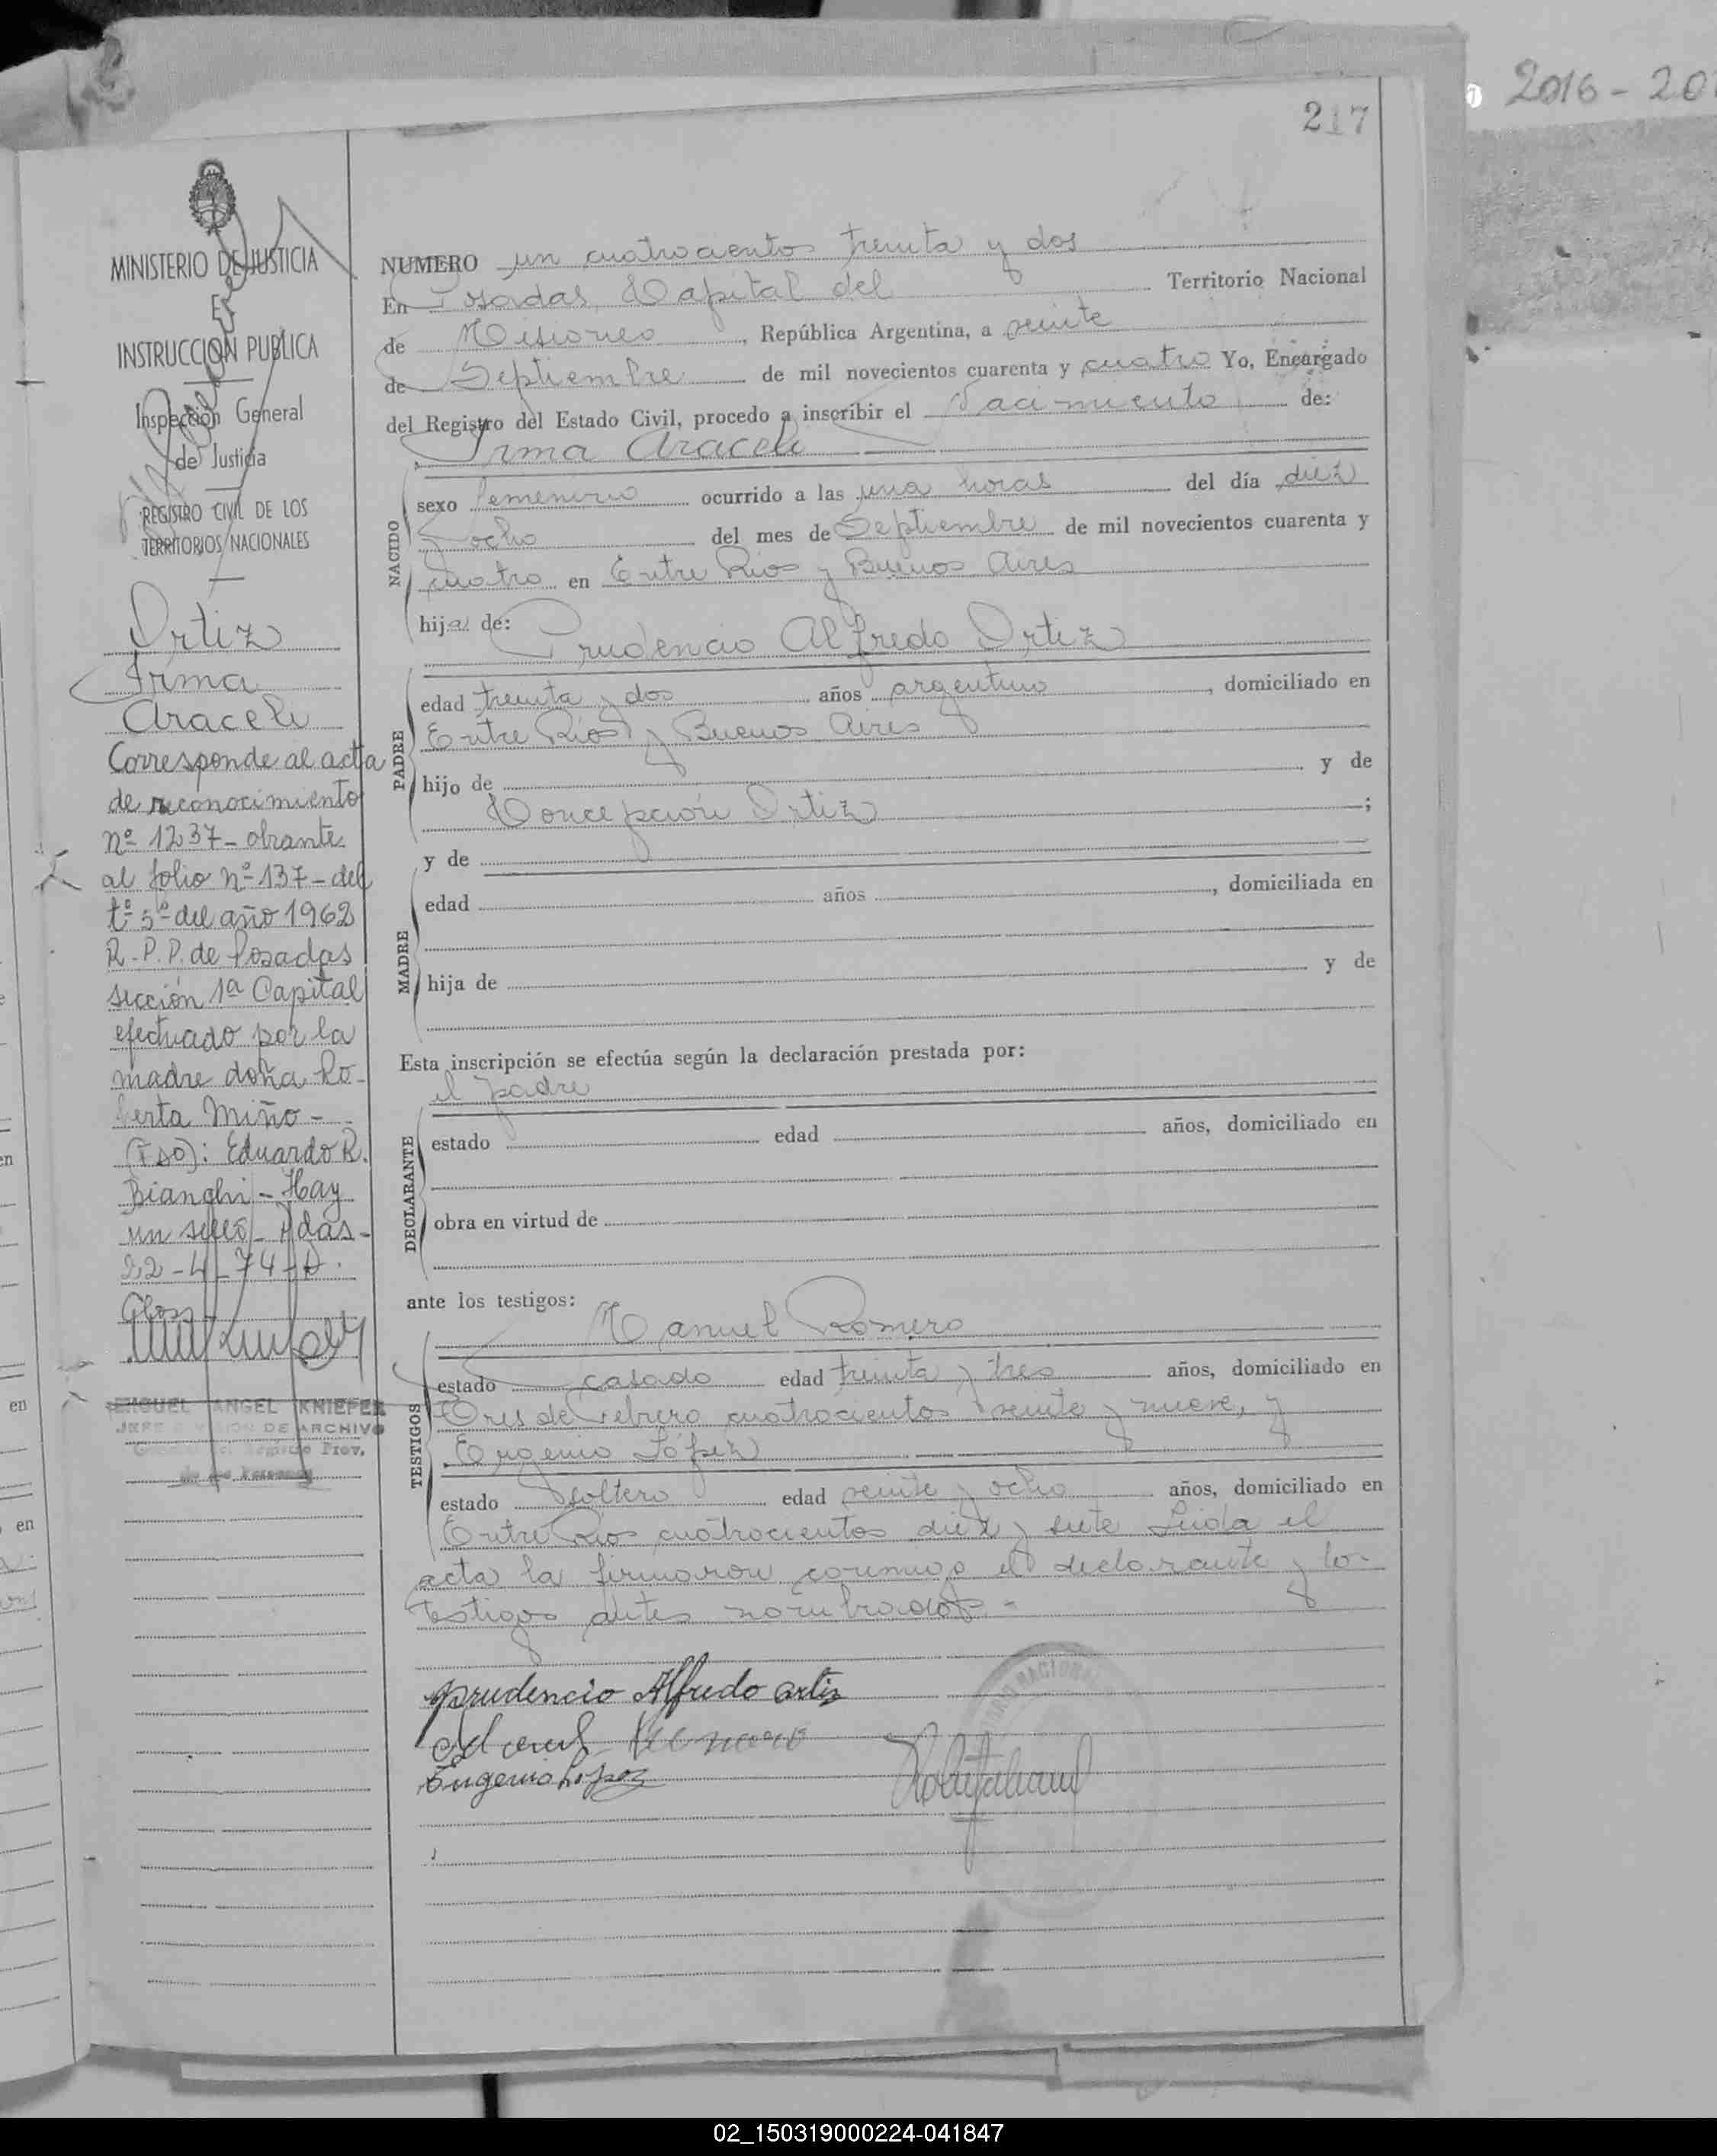 2016-20
217
MINISTERIO DE JUSTICIA
E
INSTRUCCION PUBLICA
Inspección General
de Justicia
REGISTRO CIVIL DE LOS
TERRITORIOS NACIONALES
Ortiz
Irma
Araceli
Corresponde al acta
de reconocimiento
nº 1237 - obrante
al folio nº 137 - del
tº 5º del año 1962
R. P. P. de Posadas
sección 1ª Capital
efectuado por la
madre doña Ro-
berta Miño -
(Fdo): Eduardo R.
Bianchi - Hay
un sello - Pdas -
22-4-74
MIGUEL ANGEL KNIEFER
JEFE DIVISION DE ARCHIVO
Prov.
NUMERO un cuatrocientos treinta y dos
En Posadas, Capital del Territorio Nacional
de Misiones, República Argentina, a veinte
de Septiembre de mil novecientos cuarenta y cuatro Yo, Encargado
del Registro del Estado Civil, procedo a inscribir el Nacimiento de:
Irma Araceli
NACIDO
sexo femenino ocurrido a las una horas del día diez
y ocho del mes de Septiembre de mil novecientos cuarenta y
cuatro en Entre Rios y Buenos Aires
hija de: Prudencio Alfredo Ortiz
PADRE
edad treinta y dos años argentino, domiciliado en
Entre Rios y Buenos Aires
hijo de y de
Concepción Ortiz ;
y de
MADRE
edad años , domiciliada en
hija de y de
Esta inscripción se efectúa según la declaración prestada por:
el padre
DECLARANTE
estado edad años, domiciliado en
obra en virtud de
ante los testigos:
Manuel Romero
TESTIGOS
estado casado edad treinta y tres años, domiciliado en
Tres de Febrero cuatrocientos veinte y nueve, y
Eugenio López
estado soltero edad veinte y ocho años, domiciliado en
Entre Rios cuatrocientos diez y siete Leida el
acta la firmaron conmigo el declarante y los
testigos antes nombrados.-
Prudencio Alfredo Ortiz
Manuel Romero
Eugenio López
02_150319000224-041847